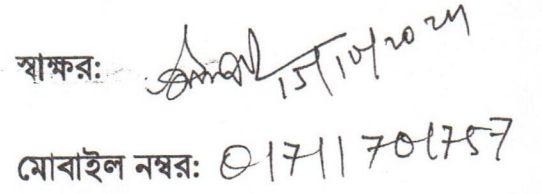 স্বাক্ষর: 15/10/2024
মোবাইল নম্বর: 01711701757